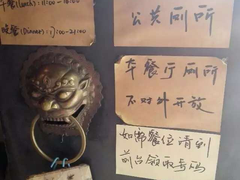 午餐(Lunch):11:00-15:00
晚餐(Dinner):17:00-21:00
公共厕所
本餐厅厕所
不对外开放
如需餐位请到
前台领取号码